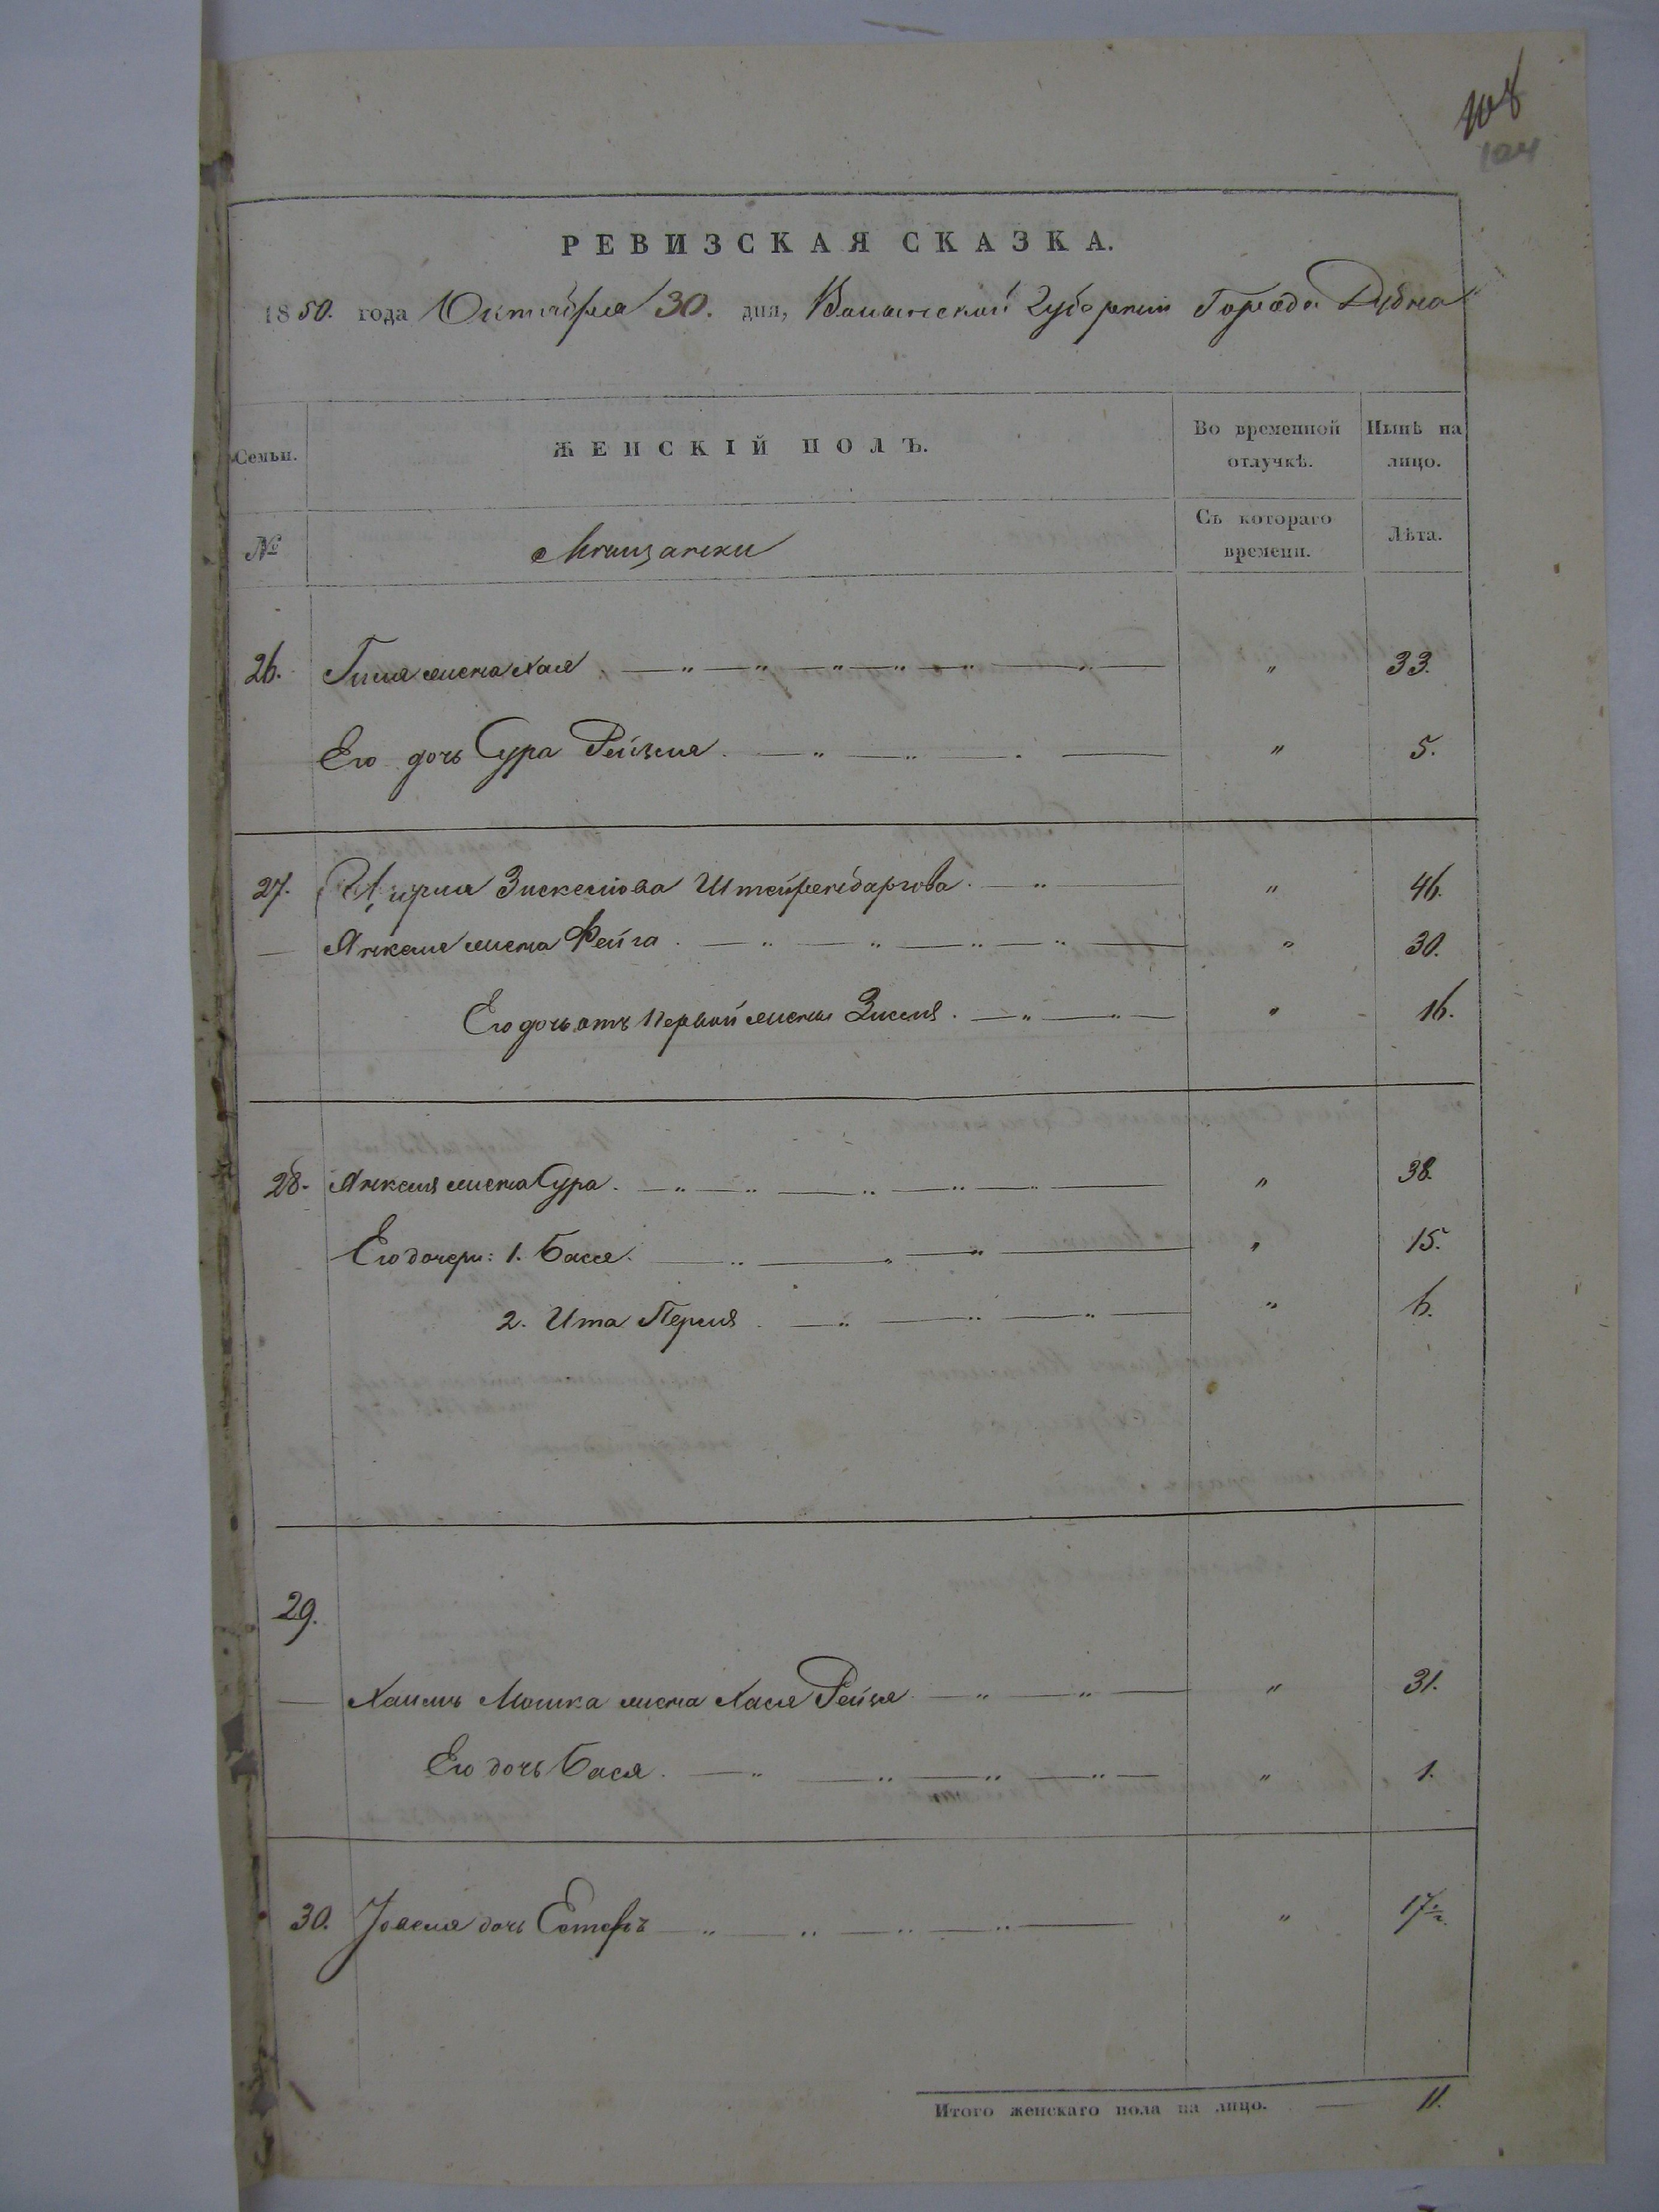 108
104
РЕВИЗСКАЯ СКАЗКА.
1850. года Октября 30. дня, Волынской Губернии Города Дубна
Семьи. ЖЕНСКІЙ ПОЛЪ. Во временной отлучкѣ. Нынѣ на лицо.
№ Мещански Съ котораго времени. Лѣта.
26. жена Хая " 33.
Его дочь Сура Рейзля " 5.
27. Зискелiова Штейренбаргова " 46.
Янкеля жена Фейга " 30.
Его дочь отъ Первой жены Зисля " 16.
28. Янкеля жена Сура " 38.
Его дочери: 1. Бася " 15.
2. Ита Перля " 6.
29.
Хаимъ Мошка жена Хася Рейзя " 31.
Его дочь Бася " 1.
30. дочь Естеръ " 17½
Итого женскаго пола на лицо. 11.